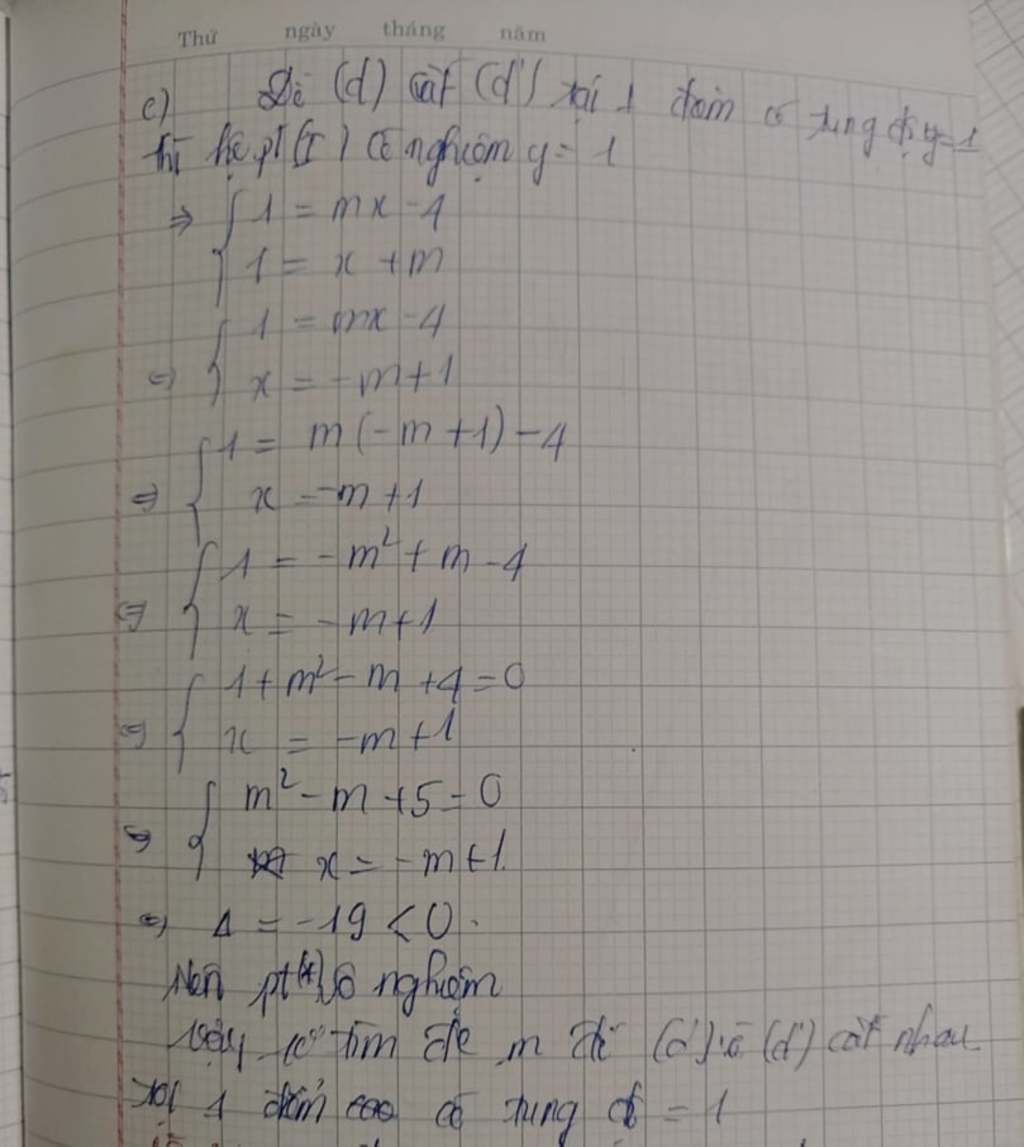 Thứ ngày tháng năm
c) Để (d) cắt (d') tại 1 điểm có tung độ y=1
thì hệ pt (I) có nghiệm y = 1
⇒ { 1 = mx - 4
1 = x + m
⇔ { 1 = mx - 4
x = -m + 1
⇔ { 1 = m(-m + 1) - 4
x = -m + 1
⇔ { 1 = -m² + m - 4
x = -m + 1
⇔ { 1 + m² - m + 4 = 0
x = -m + 1
⇔ { m² - m + 5 = 0
x = -m + 1.
⇔ Δ = -19 < 0.
Nên pt (*) vô nghiệm
Vậy tìm m để (d) và (d') cắt nhau
tại 1 điểm có tung độ = 1